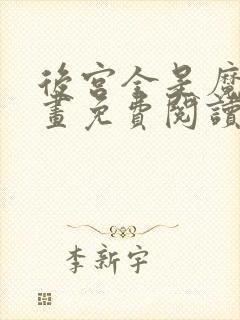 後宮全是魔
畫免費閱讀
李新宇